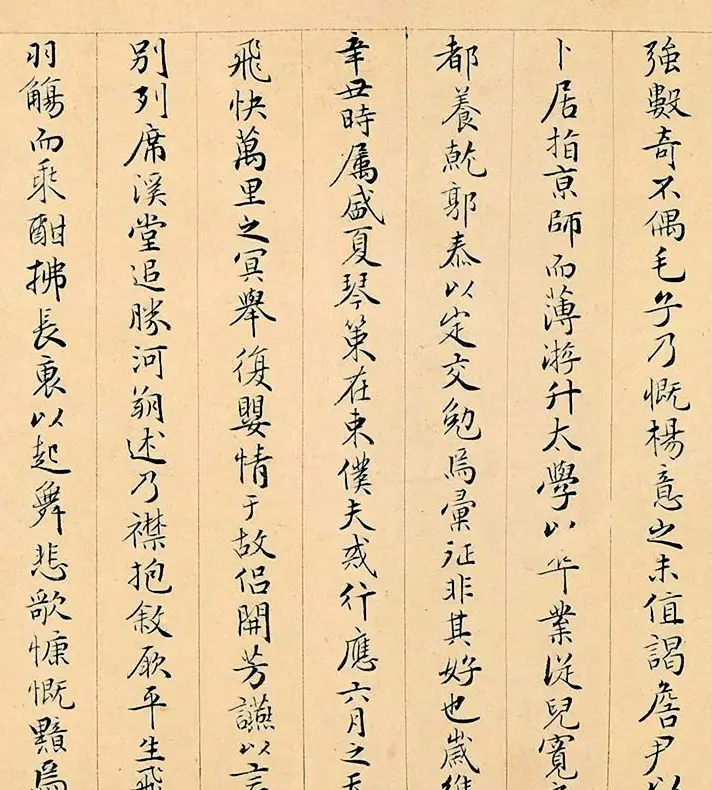 強數奇不偶毛子乃慨楊意之未值謁詹尹以
卜居指京師而薄游升太學以卒業從兒寬
都養乾郭泰以定交勉焉彙征非其好也歲維
辛丑時属盛夏琴策在東僕夫戒行應六月之
飛快萬里之冥舉復嬰情于故侶開芳讌以言
別列席溪堂追勝河朔述乃襟抱敘厥平生飛
羽觴而乘酣拂長裒以起舞悲歌慷慨黯焉